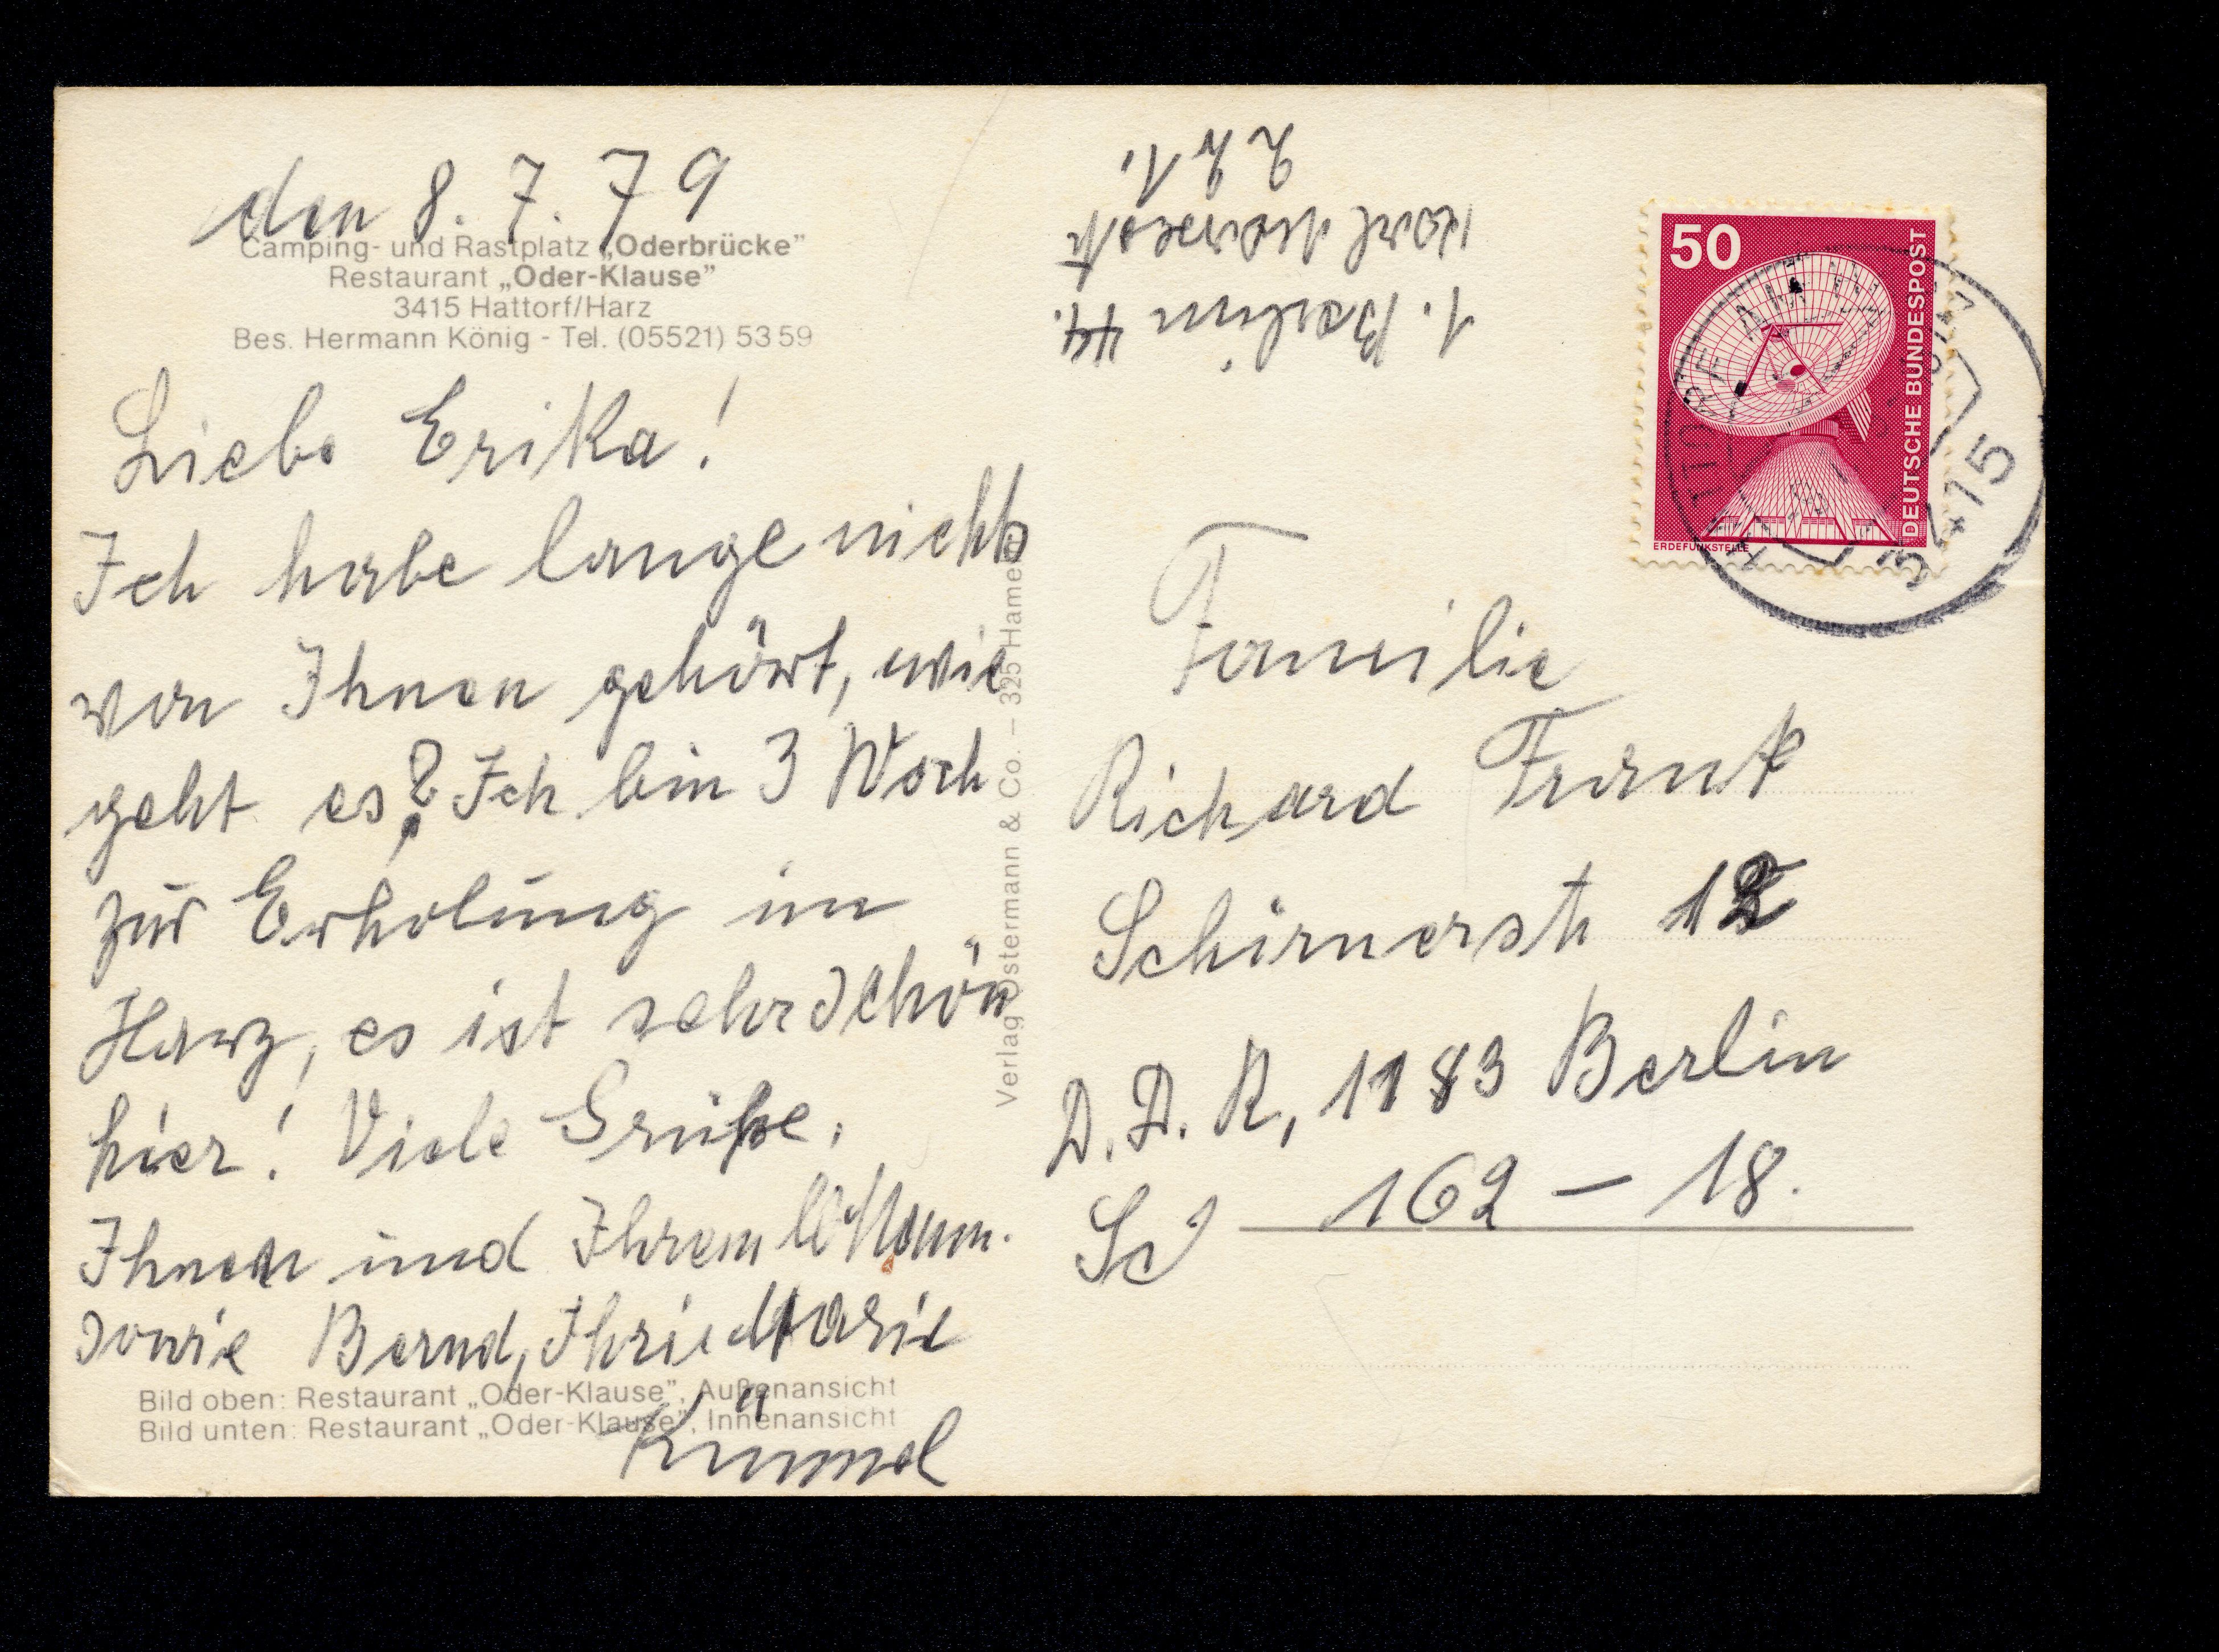 den 8.7.79
Camping- und Rastplatz „Oderbrücke”
Restaurant „Oder-Klause”
3415 Hattorf/Harz
Bes. Hermann König - Tel. (05521) 53 59
Liebe Erika!
Ich habe lange nichts
von Ihnen gehört, wie
geht es? Ich bin 3 Woch
zur Erholung im
Harz, es ist sehr schön
hier! Viele Grüße,
Ihnen und Ihrem lb. Mann.
sowie Bernd, Ihrie Marie
Kümmel
Bild oben: Restaurant „Oder-Klause”, Außenansicht
Bild unten: Restaurant „Oder-Klause”, Innenansicht
Verlag Ostermann & Co. – 325 Hameln
1. Berlin 44.
Karl Marxstr
221.
50
DEUTSCHE BUNDESPOST
ERDEFUNKSTELLE
HATTORF AM HARZ
3415
Familie
Richard Frank
Schirnerstr 12
D.D.R, 1183 Berlin
162 – 18.